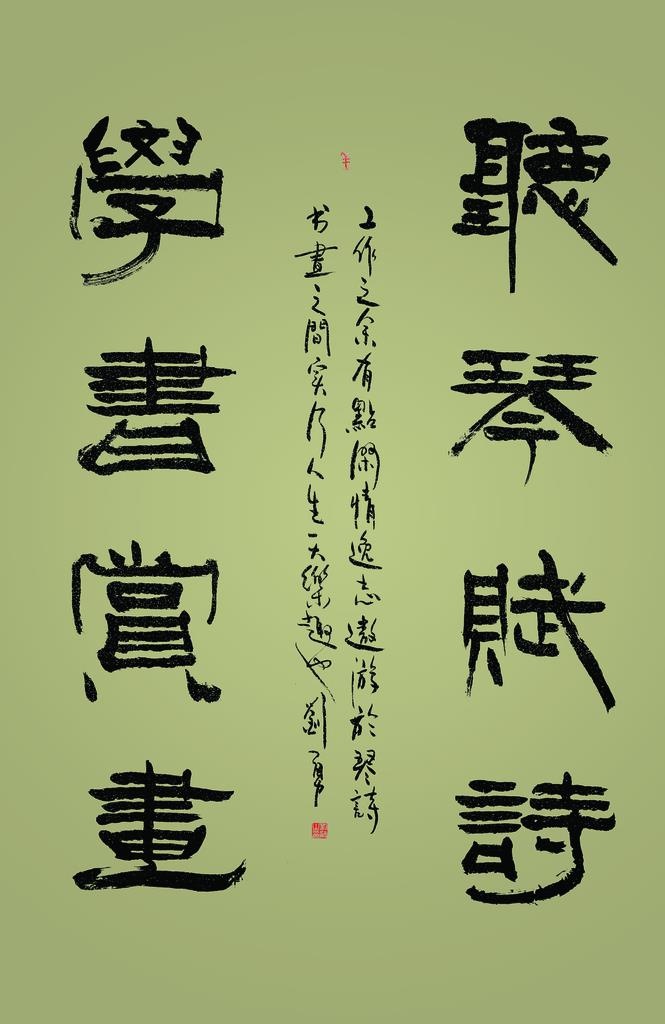 聽琴賦詩
工作之余有點閑情逸志遨游於琴詩
书畫之間实乃人生一大樂趣也劉勇
學書賞畫